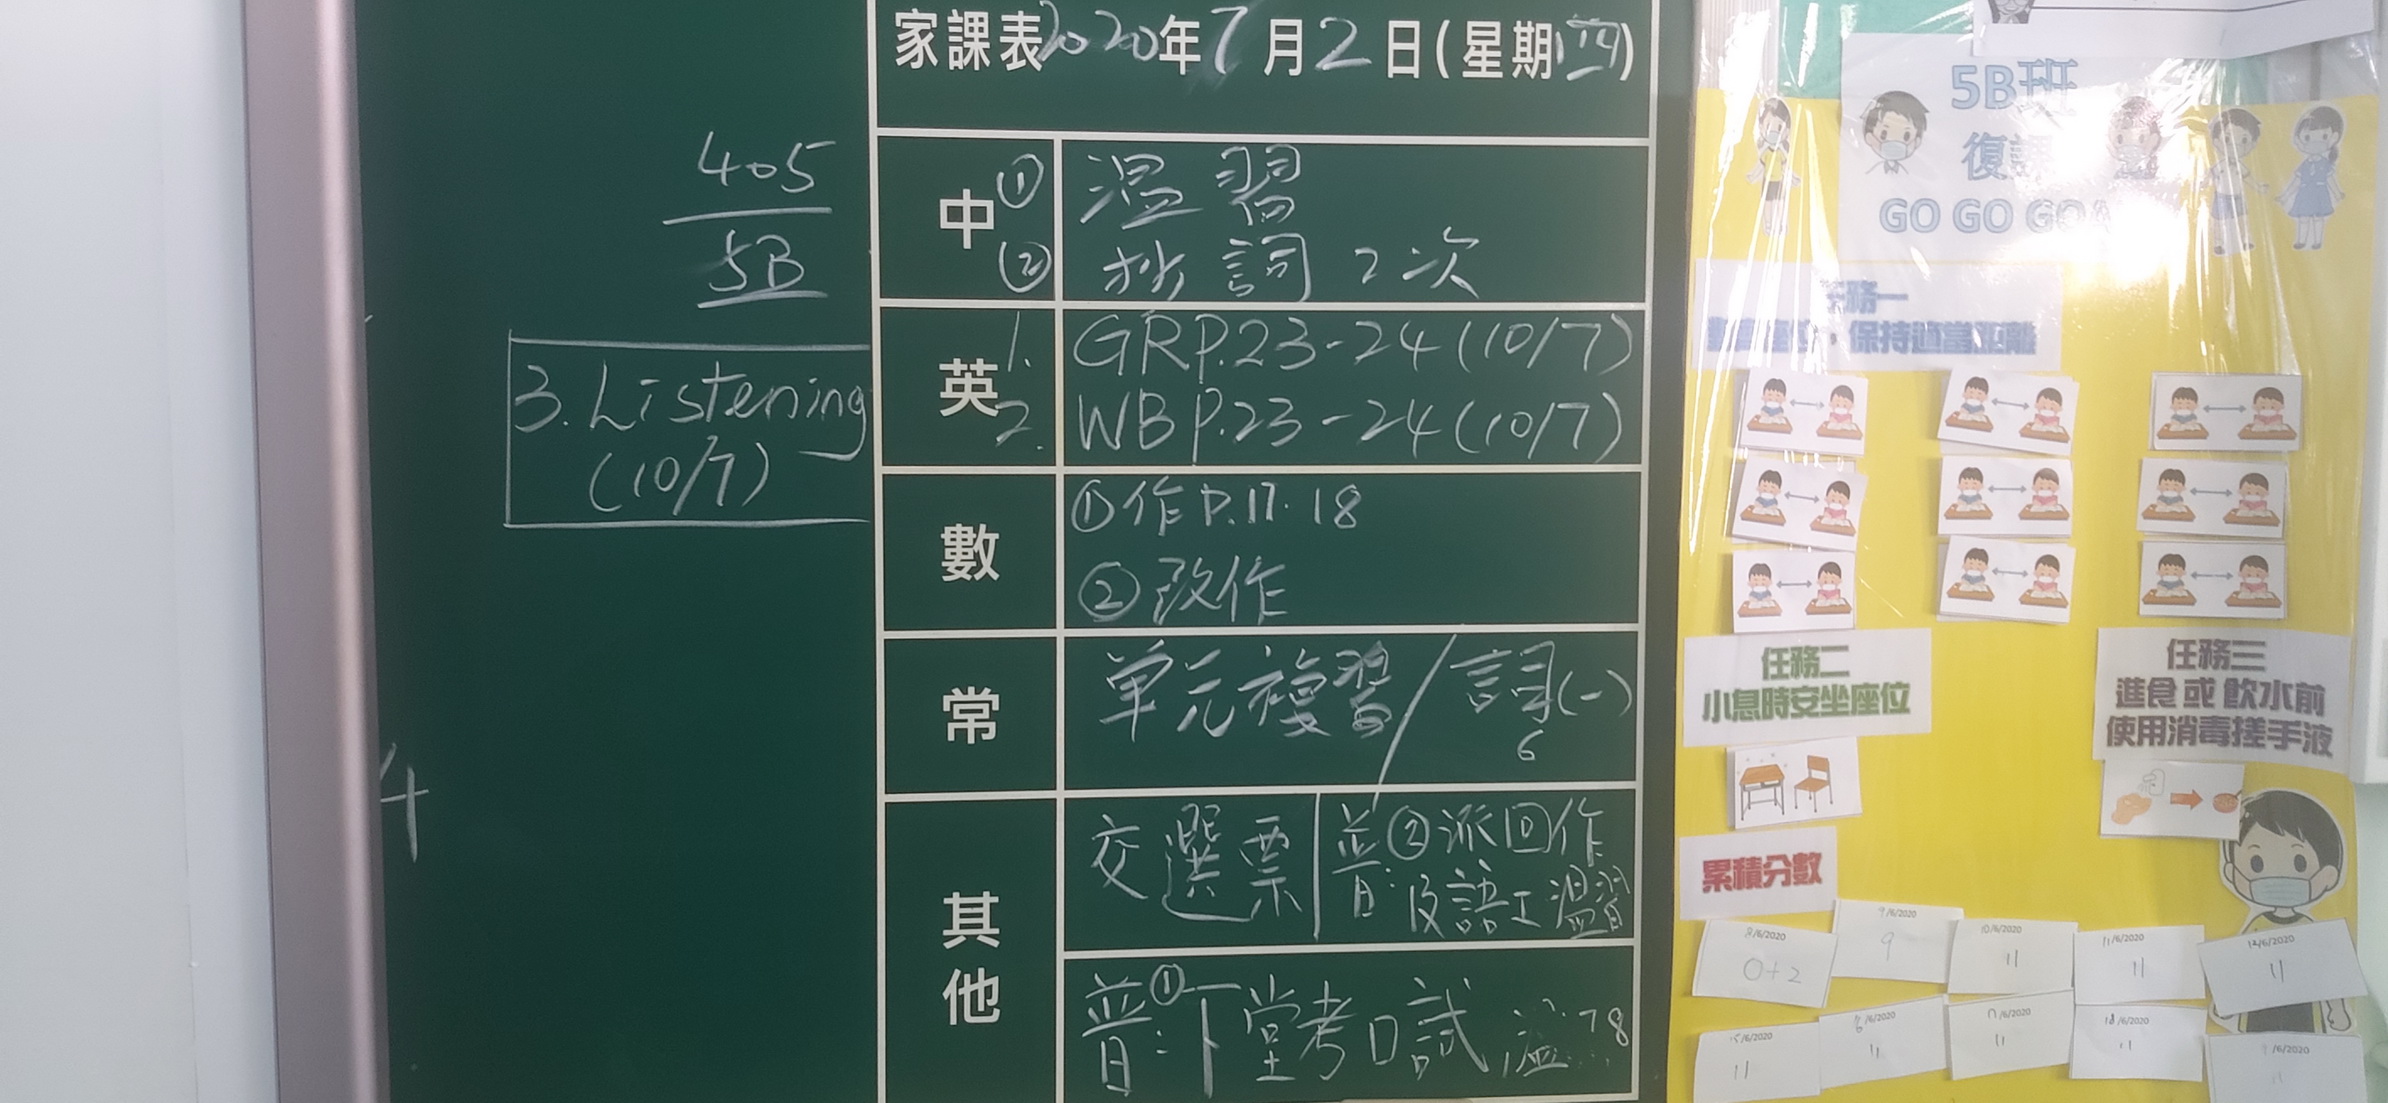 家課表2020年7月2日(星期四)
405
5B
中
① 溫習
② 抄詞2次
英
1. GRP.23-24(10/7)
2. WBP.23-24(10/7)
3. Listening
(10/7)
數
①作P.17. 18
②改作
常
單元複習/詞(一)
6
4
其他
交選票
普:②派回作
及語工溫習
普:①下堂考口試,溫
78
5B班
復課
GO GO GO
任務一
保持適當距離
任務二
小息時安坐座位
任務三
進食或飲水前
使用消毒搓手液
累積分數
8/6/2020
0+2
9/6/2020
9
10/6/2020
11
11/6/2020
11
12/6/2020
11
15/6/2020
11
11
11
18/6/2020
11
/6/2020